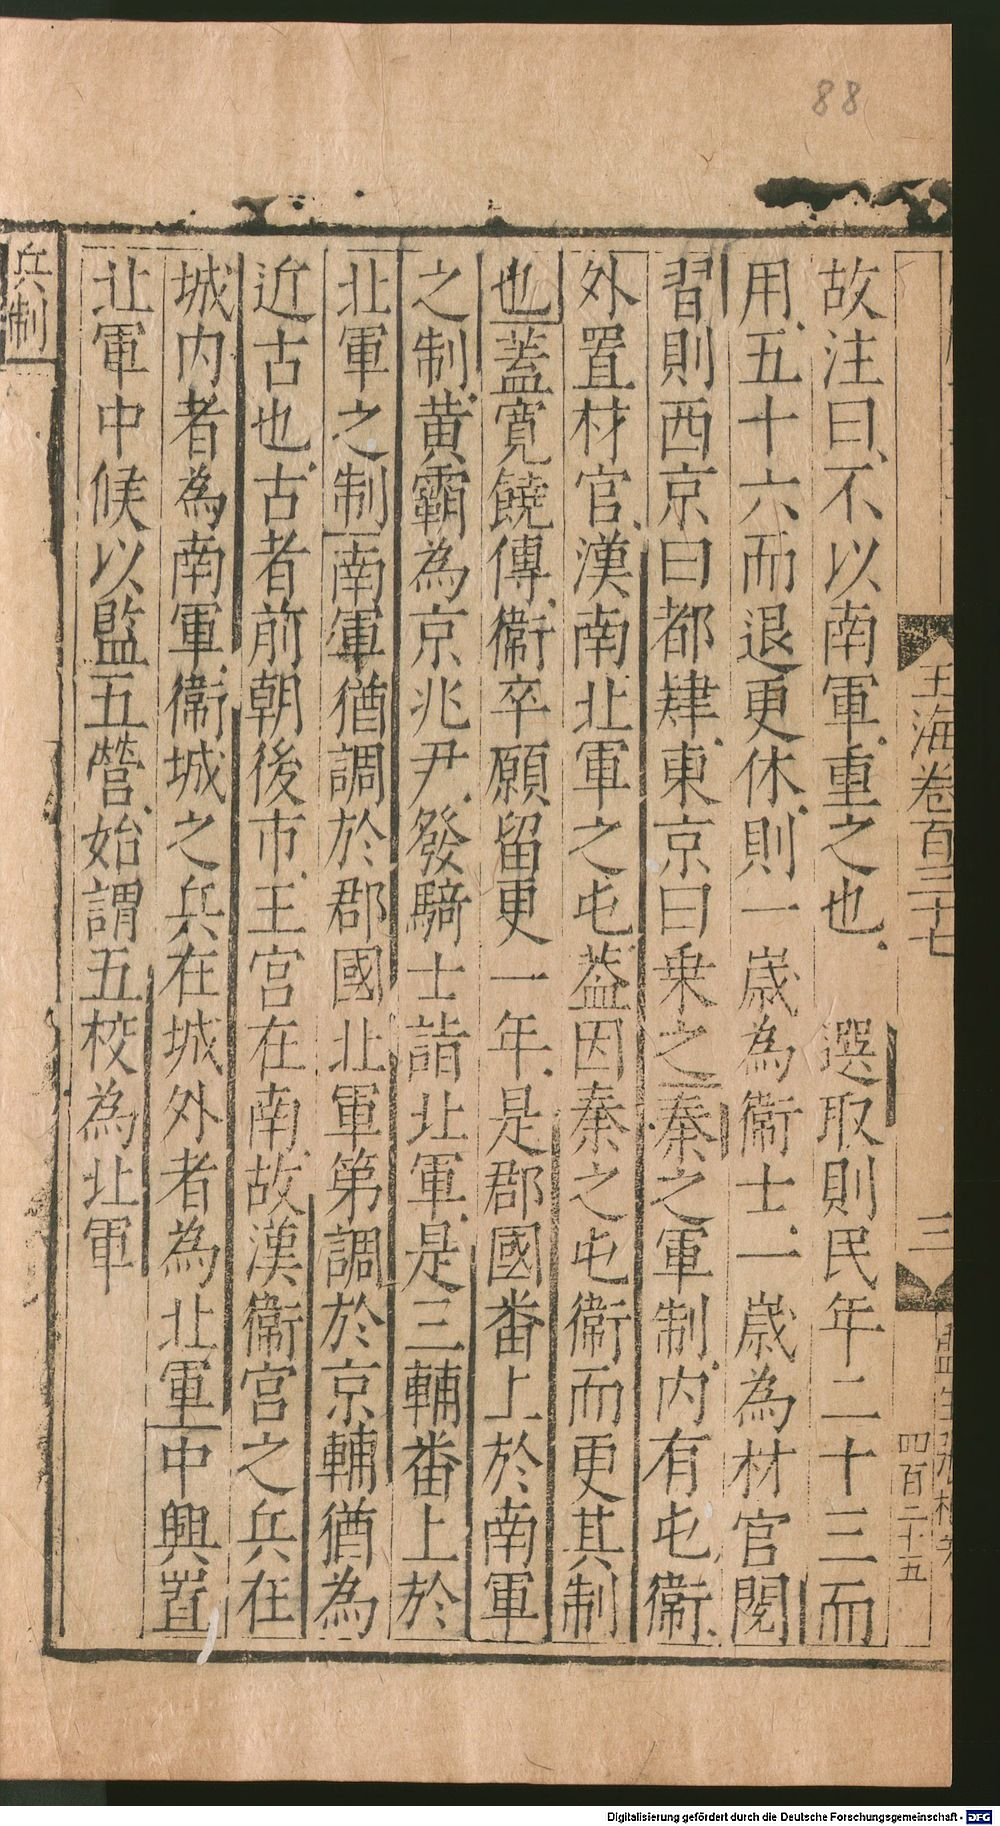 88
玉海卷百三十七
三
四百二十五
故注曰不以南軍重之也 選取則民年二十三而
用五十六而退更休則一歲為衞士一歲為材官閱
習則西京曰都肄東京曰乗之秦之軍制内有屯衞
外置材官漢南北軍之屯葢因秦之屯衞而更其制
也蓋寬饒傳衞卒願留更一年是郡國番上於南軍
之制黄霸為京兆尹發騎士詣北軍是三輔番上於
北軍之制南軍猶調於郡國北軍第調於京輔猶為
近古也古者前朝後市王宫在南故漢衞宫之兵在
城内者為南軍衞城之兵在城外者為北軍中興置
北軍中候以監五營始謂五校為北軍
兵制
Digitalisierung gefördert durch die Deutsche Forschungsgemeinschaft - DFG